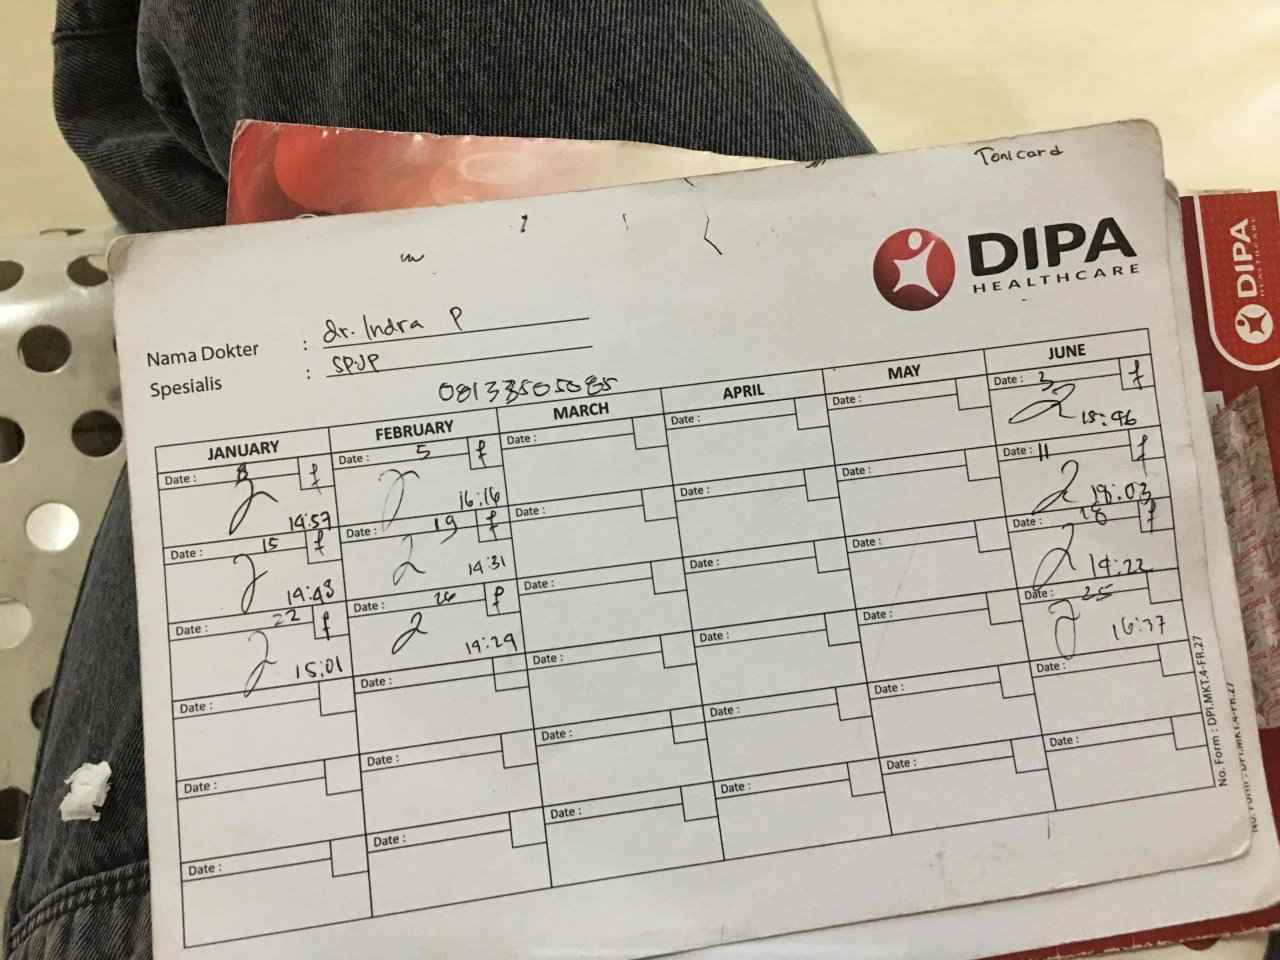 Tonicard
DIPA
HEALTHCARE
Nama Dokter : dr. Indra P
Spesialis : SPJP
081338505085
JANUARY FEBRUARY MARCH APRIL MAY JUNE
Date : 8 f Date : 5 f Date : Date : Date : Date : 3 f
14:57 16:16 15:46
Date : 15 f Date : 19 f Date : Date : Date : Date : 11 f
14:43 14:31 18:03
Date : 22 f Date : 26 f Date : Date : Date : Date : 18 f
15:01 14:29 14:22
Date : Date : Date : Date : Date : Date : 25
16:37
Date : Date : Date : Date : Date : Date :
Date : Date : Date : Date : Date : Date :
No. Form : DPI.MKT.4-FR.27
No. Form : DPI.MKT.4-FR.27
DIPA
HEALTHCARE